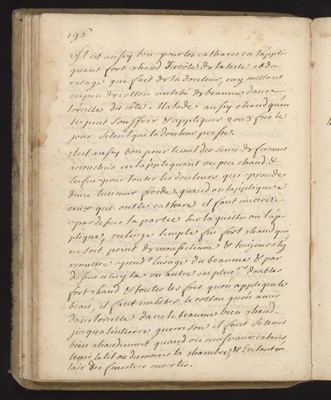 196
Il est aussy bon pour les catharres en l'appli-
quant fort chaud du côté de la teste et du
visage qui fait de la douleur, en y mettant
un peu de cotton imbibé de beaume dans
l'oreille du côté malade aussy chaud qu'on
le peut souffrir & appliquer 2 ou 3 fois le
jour selon que la douleur presse.
Il est aussy bon pour le mal des seins de femmes
accouchées en l'appliquant un peu chaud &
enfin pour toutes les douleurs qui procede
d'une humeur froide, quand on l'applique a
ceux qui ont le cathare il faut mettre
par dessus la partie sur laquelle on l'ap-
plique, un linge simple fin fort chaud qui
ne soit point de mousseline & toujours le y
remettre pend.t l'usage du beaume & par
dessus celuy la un autre en plus.rs doubles
fort chaud & toutes les fois qu'on applique le
beau, il faut imbiber le cotton qu'on aura
dans l'oreille dans le beaume bien chaud
jusqu'a l'entiere guerison il faut se tenir
bien chaudement quand on en use aux cathares
tenir le lit ou du moins la chambre, & Evitant
l'air des fenestres ouvertes.